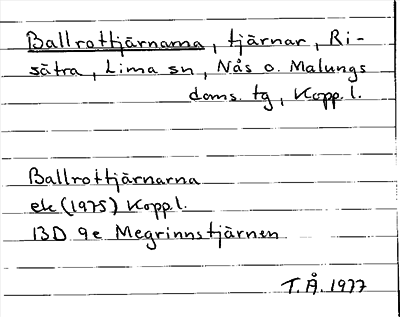 Ballrottjärnarna, tjärnar, Ri-
sätra, Lima sn, Nås o. Malungs
doms. tg, Kopp. l.
Ballrottjärnarna
ek (1975) Kopp. l.
13D 9e Megrinnstjärnen
T.Å. 1977